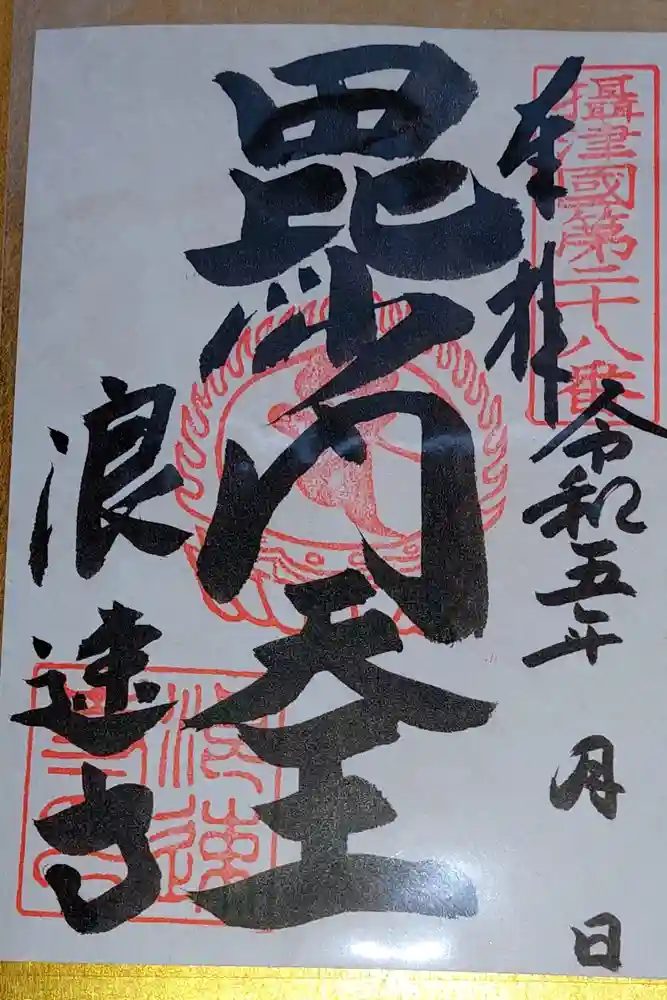 奉拝
攝津國第二十八番
令和五年 月 日
毘沙門天王
浪速寺